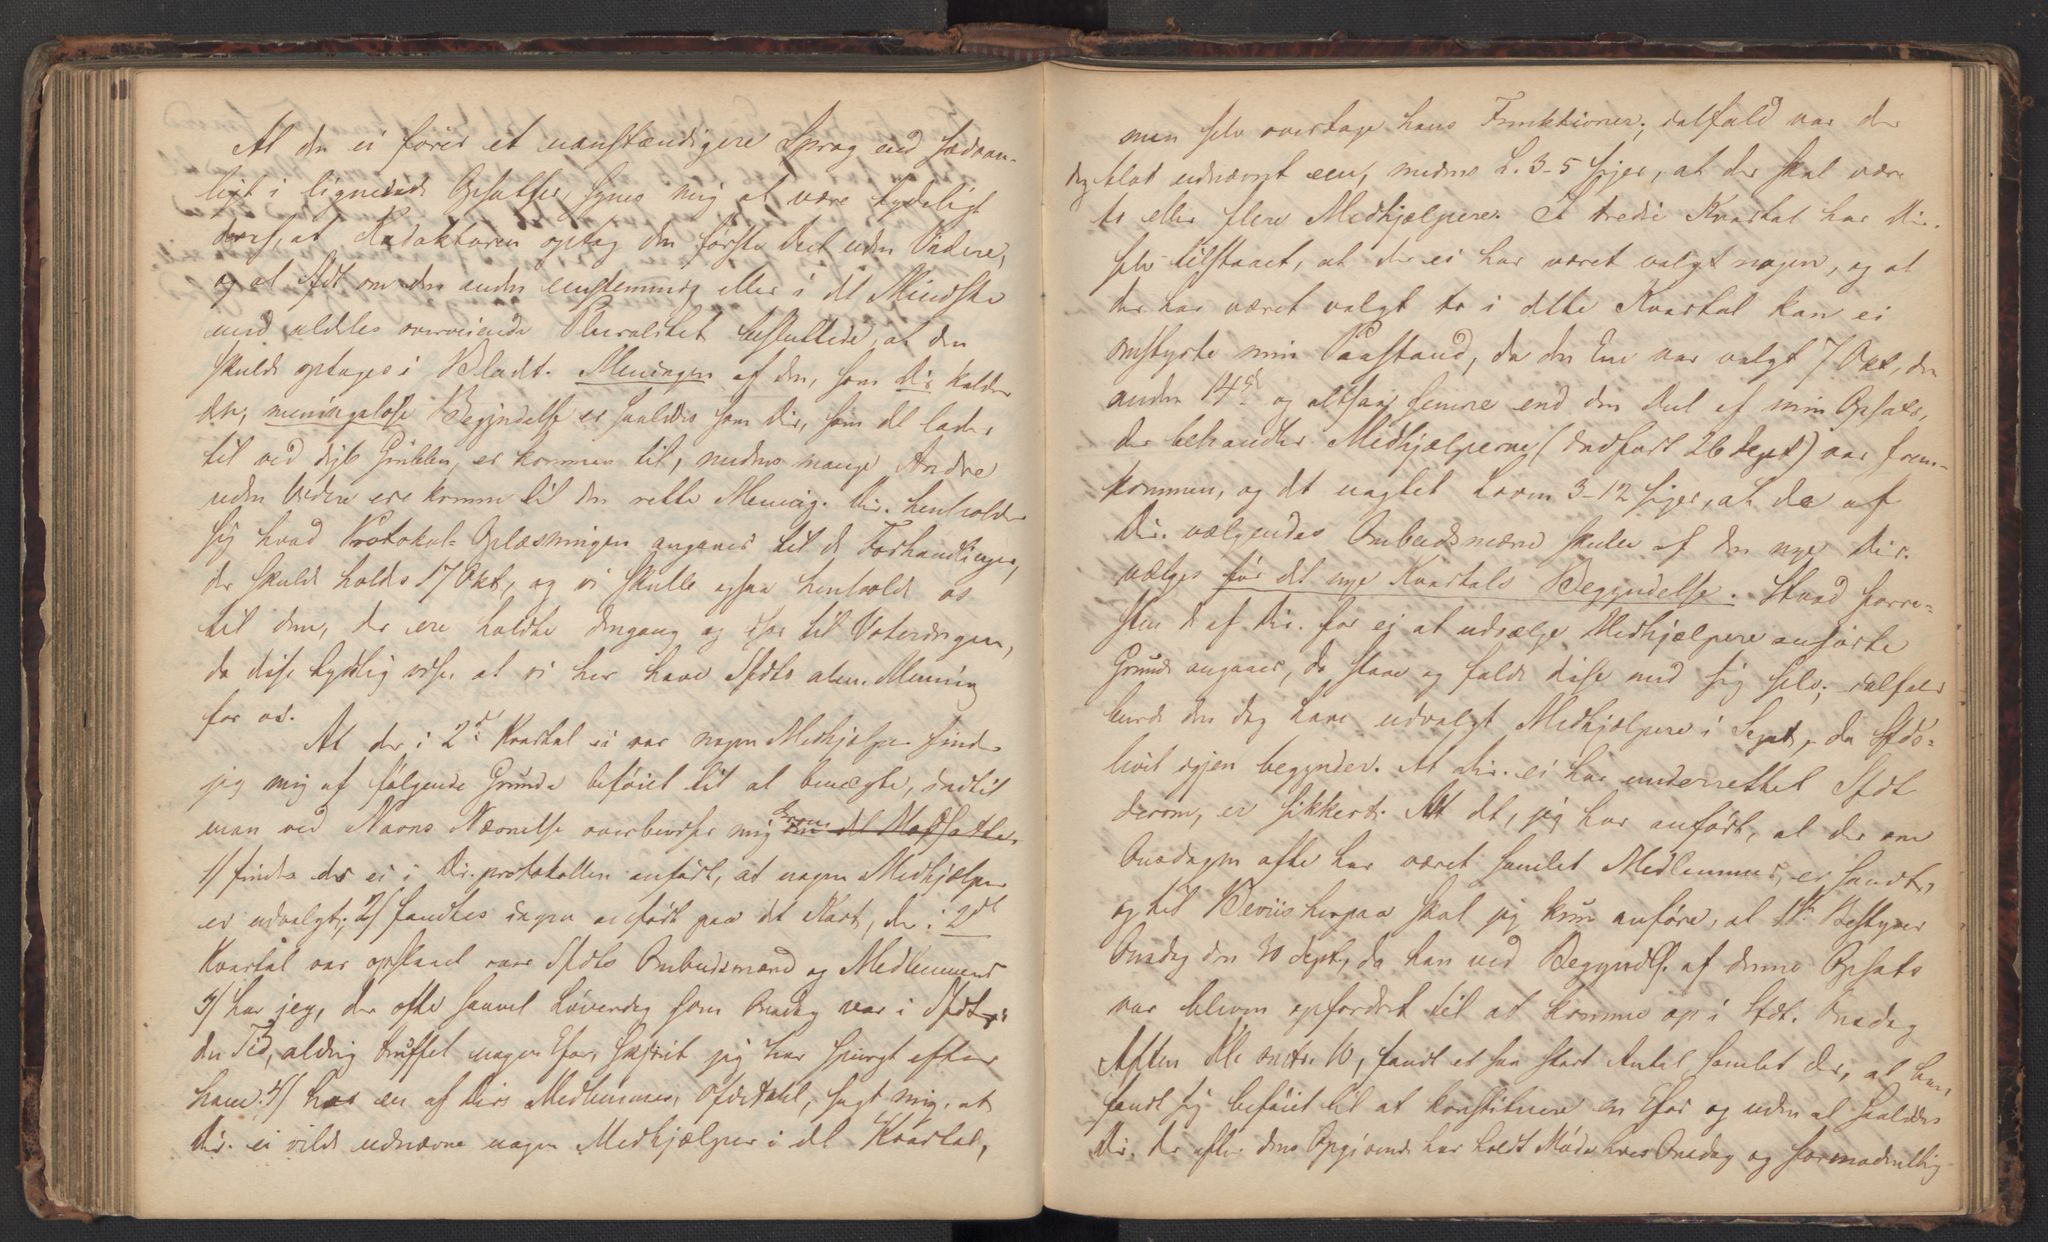 At den ei fører et uanstændigere Sprog end sædvan-
ligt i lignende Opsatser synes mig at være tydeligt
deraf, at Redaktøren optog den første Deel uden Videre,
og at Sfdt om den anden eenstemmig eller i det Mindste
med aldeles overveiende Pluralitet besluttede, at den
skulde optages i Bladt. Meningen af den, som Dir kalder
den, meningsløse Begyndelse er saaledes som Dir, som det lader
til ved dybt Grublen, er kommen til, medens mange Andre
uden Videre ere komne til den rette Mening. Dir. henholder
sig hvad Protokol-Oplæsningen angaaer til de Forhandlinger,
der skulde holdes 17 Okt, og vi skulle ogsaa henholde os
til dem, der ere holdte dengang og især til Voteringen,
da disse tydelig viser at vi her have Sfdts alm. Mening
for os.
At der i 2det Kvartal ei var nogen Medhjælper finder
jeg mig af følgende Grunde beføiet til at benægte, indtil
man ved Navns Nævnelse overbeviser mig om det Modsatte.
1/ findes der ei i Dir.protokollen anført, at nogen Medhjælper
er udvalgt; 2/ fandtes ingen anført paa det Kart, der i 2det
Kvartal var opslaaet over Sfdts Ombudsmænd og Medlemmer
3/ har jeg, der ofte saavel Løverdag som Onsdag var i Sfdt
den Tid, aldrig truffet nogen Efor, skjønt jeg har spurgt efter
ham. 4/ har en af Dirs Medlemmer, Ofdedahl, sagt mig, at
Dir. ei vilde udnævne nogen Medhjælper i det Kvartal,
men selv overtage hans Funktioner; ialfald var der
dog blot udnævnt een, medens L. 3-5 siger, at der skal være
to eller flere Medhjælpere. I tredie Kvartal har Dir.
selv tilstaaet, at der ei har været valgt nogen, og at
der har været valgt to i dette Kvartal kan ei
omstyrte min Paastand, da den Ene var valgt 7 Okt, den
anden 14de og altsaa senere end den Deel af min Opsats,
der behandler Medhjælperne (indført 26 Sept) var frem-
kommen, og det uagtet Loven 3-12 siger, at de af
Dir. vælgendes Ombudsmænd skulle af den nye Dir.
vælges før det nye Kvartals Begyndelse. Hvad forre-
sten de af Dir. for ei at udvælge Medhjælpere anførte
Grunde angaaer, da staae og falde disse med sig selv; ialfald
burde den dog have udvalgt Medhjælpere i Sept, da Sfds-
livet igjen begynder. At Dir. ei har underrettet Sfdt
derom, er sikkert. At det, jeg har anført, at der om
Onsdagen ofte har været samlet Medlemmer, er sandt,
og til Beviis herpaa skal jeg kun anføre, at Bestyrer
Onsdag den 30 Sept, da han ved Begyndelse af denne Opsats
var bleven opfordret til at komme op i Sfdt. Onsdag
Aften Kl omtr. 10, fandt et saa stort Antal samlet der, at han
fandt sig beføiet til at konstituere en Efor og uden at saaledes
Dir. der efter dens Opgivende har holdt Møde hver Onsdag og formodentlig